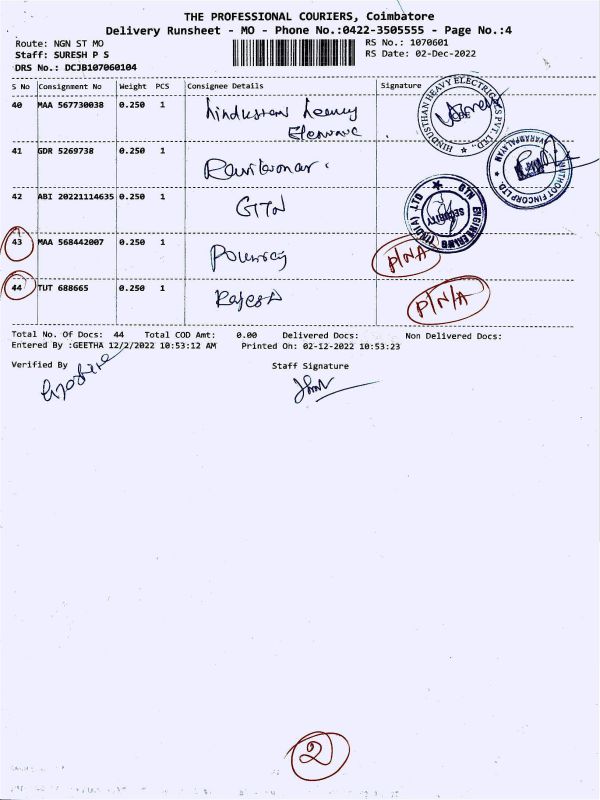 THE PROFESSIONAL COURIERS, Coimbatore
Delivery Runsheet - MO - Phone No.:0422-3505555 - Page No.:4
Route: NGN ST MO
RS No.: 1070601
Staff: SURESH P S
RS Date: 02-Dec-2022
DRS No.: DCJB107060104
S No Consignment No Weight PCS Consignee Details Signature
40 MAA 567730038 0.250 1 hindustan heavy
HINDUSTHAN HEAVY ELECTRICALS PVT. LTD.,
41 GDR 5269738 0.250 1
MUTHOOT FINCORP LTD.
42 ABI 20221114635 0.250 1 GTN
ENGINEERING (INDIA) LTD
SECURITY
43 MAA 568442007 0.250 1 P/N/A
44 TUT 688665 0.250 1 Rajesh P/N/A
Total No. Of Docs: 44 Total COD Amt: 0.00 Delivered Docs: Non Delivered Docs:
Entered By :GEETHA 12/2/2022 10:53:12 AM Printed On: 02-12-2022 10:53:23
Verified By Staff Signature
2